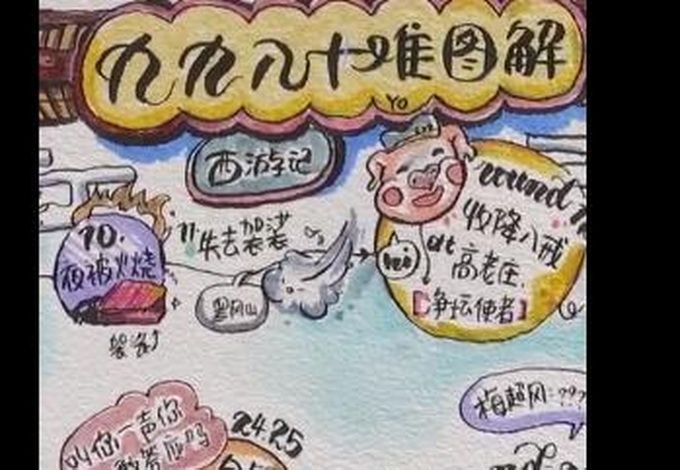 九九八十难图解
YO
西游记
10.
夜被火烧
袈裟
11 失去袈裟
黑风山
round
收降八戒
at
高老庄.
【净坛使者】
叫你一声你
敢答应吗
24.25
梅超风:???